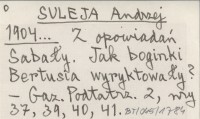 SULEJA Andrzej
1904... Z opowiadań
Sabały. Jak boginki
Bertusia wyryktowały?
- Gaz. Podtatrz. 2, nry
37, 39, 40, 41.